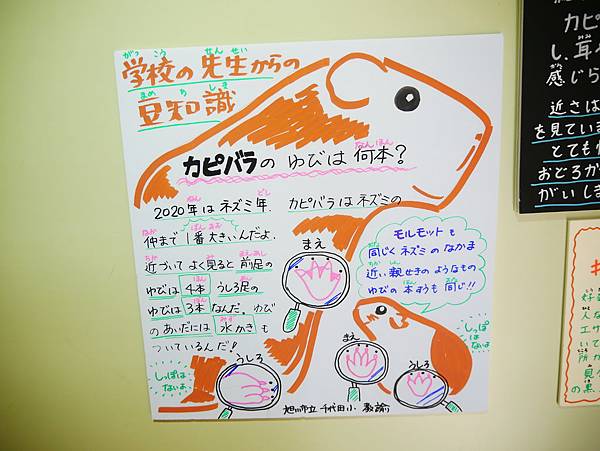 学校の先生からの
がっこう せんせい
豆知識
まめちしき
カピバラのゆびは何本?
なんぼん
2020年はネズミ年.カピバラはネズミの
ねん どし
仲まで1番大きいんだよ。
なか ばんおお
近づいてよく見ると前足の
ちか み まえあし
ゆびは4本うしろ足の
ゆびは3本なんだ。ゆび
のあいだには水かきも
みず
ついているんだ!
しっぽは
ないよ
まえ
うしろ
モルモットも
同じくネズミのなかま
近い親せきのようなもの
ゆびの本すうも同じ!!
まえ
うしろ
しっぽ
は
ないよ
旭川市立 千代田小 教諭
カピ
し、耳
感じら
近さは
を見てい
とても
おどろか
がいしま